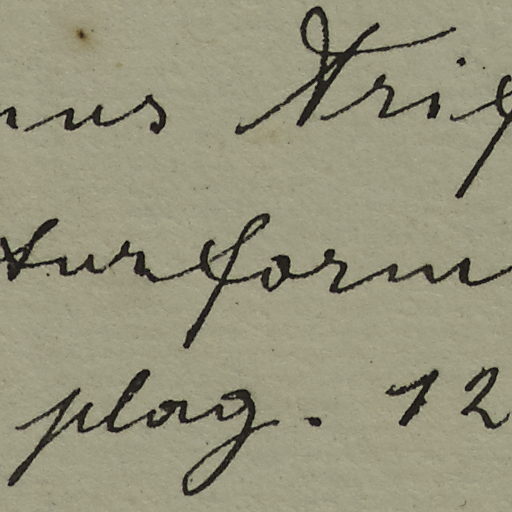 nus Krif
turform
plag. 12